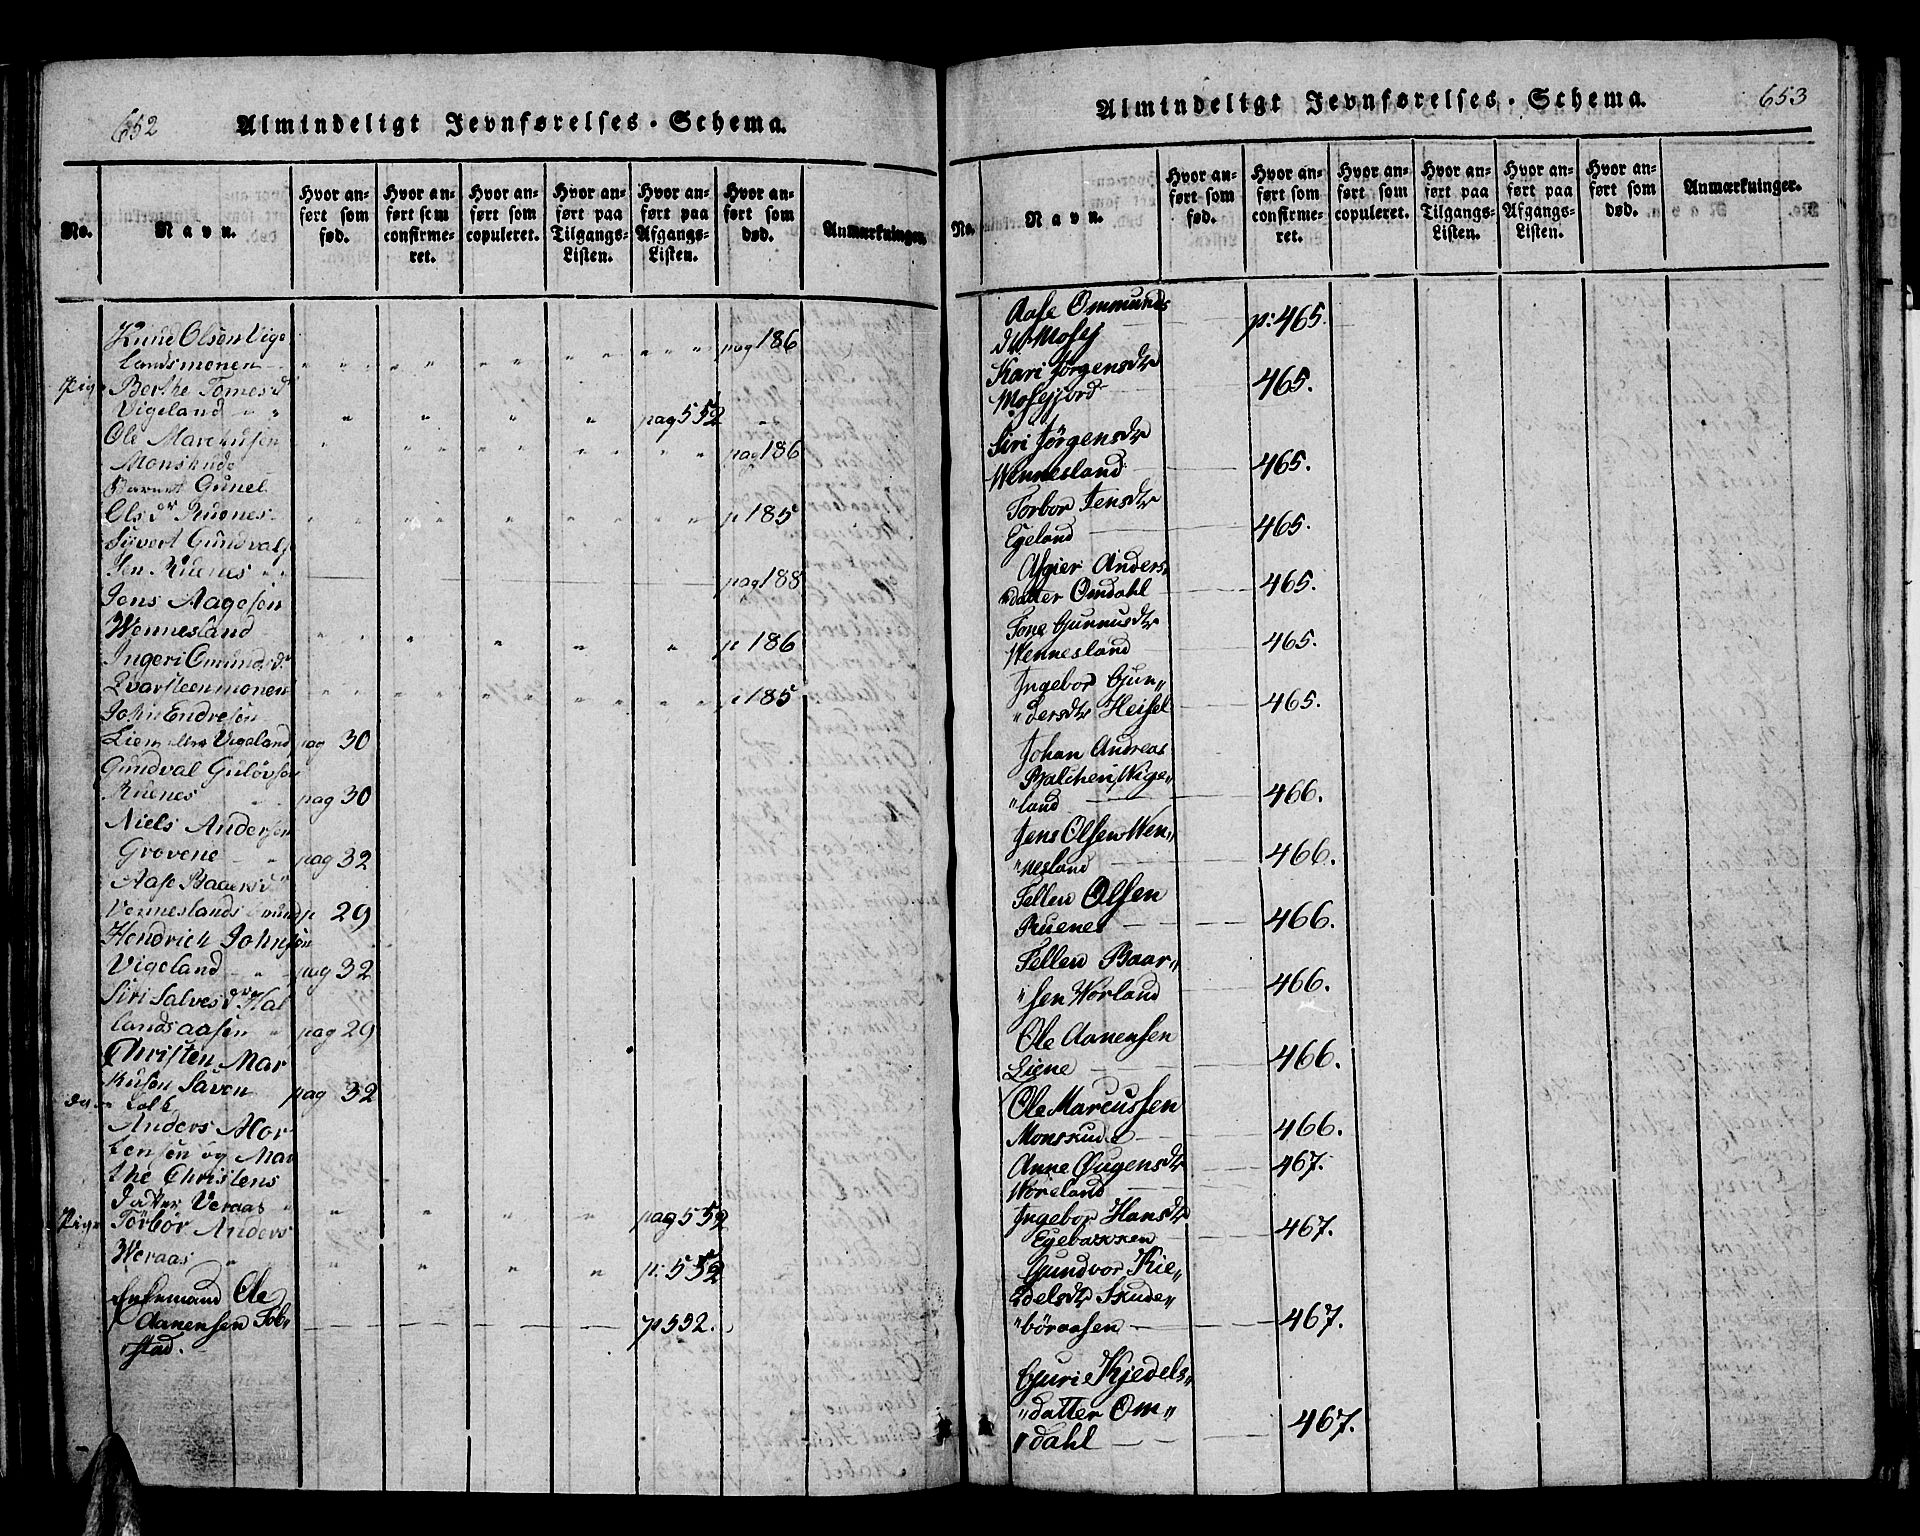 652
Almindeligt Jevnførelses-Schema.
No.
Navn.
Hvor anført som fød.
Hvor anført som confirmeret.
Hvor anført som copuleret.
Hvor anført paa Tilgangs-Listen.
Hvor anført paa Afgangs-Listen.
Hvor anført som død.
Anmærkninger.
Knud Olsen Vige
landsmonen pag 186
Pige Berthe Tomesdr
Vigeland pag 552
Ole Marcusen
Monskude pag 186
Barnet Gunel
Olsdr Ruenes p 185
Syvert Gundvals
sen Ruenes pag 188
Jens Aagesen
Wennesland p 186
Ingeri Omundsdr
Qvarsteenmonen p 185
John Endresen
Lien Vigeland pag 30
Gundval Guløvsen
Ruenes pag 30
Niels Andersen
Grovene pag 32
Aase Baaersdr
Venneslands p 29
Hendrich Johnsen
Vigeland pag 32
Siri Salvesdr Hal
landsaasen pag 29
Christen Mar
kusen Saven pag 32
Anders Mor
tensen og Mar
the Christens
datter Veraas pag 552
Pige Torbor Anders
Weraas p: 552
Ole
Aanensen
stad. p 552.
653
Almindeligt Jevnførelses-Schema.
No.
Navn.
Hvor anført som fød.
Hvor anført som confirmeret.
Hvor anført som copuleret.
Hvor anført paa Tilgangs-Listen.
Hvor anført paa Afgangs-Listen.
Hvor anført som død.
Anmærkninger.
Aase Ommunds
dtr Mosej p: 465.
Kari Jørgensdtr
Mosejjord 465.
Siri Jørgensdtr
Wennesland 465.
Torbor Jensdtr
Egeland 465.
Asgier Anders
"datter Omdahl 465.
Tone Gunnusdtr
Wennesland 465.
Ingebor Gun"
"dersdtr Heisel 465.
Johan Andreas
Balchen Wige"
"land 466.
Jens Olsen Wen"
"nesland 466.
Tellen Olsen
Ruenes 466.
Tellen Baar"
"sen Worland 466.
Ole Aanensen
Liene 466.
Ole Marcussen
Monskude 466.
Anne Ougensdtr 467.
Wøreland
Ingebor Hansdtr
Egebakken 467.
Gundvor Kie"
delsdtr Skude"
"børaasen 467.
Guri Kjedels"
"datter Om"
"dahl 467.